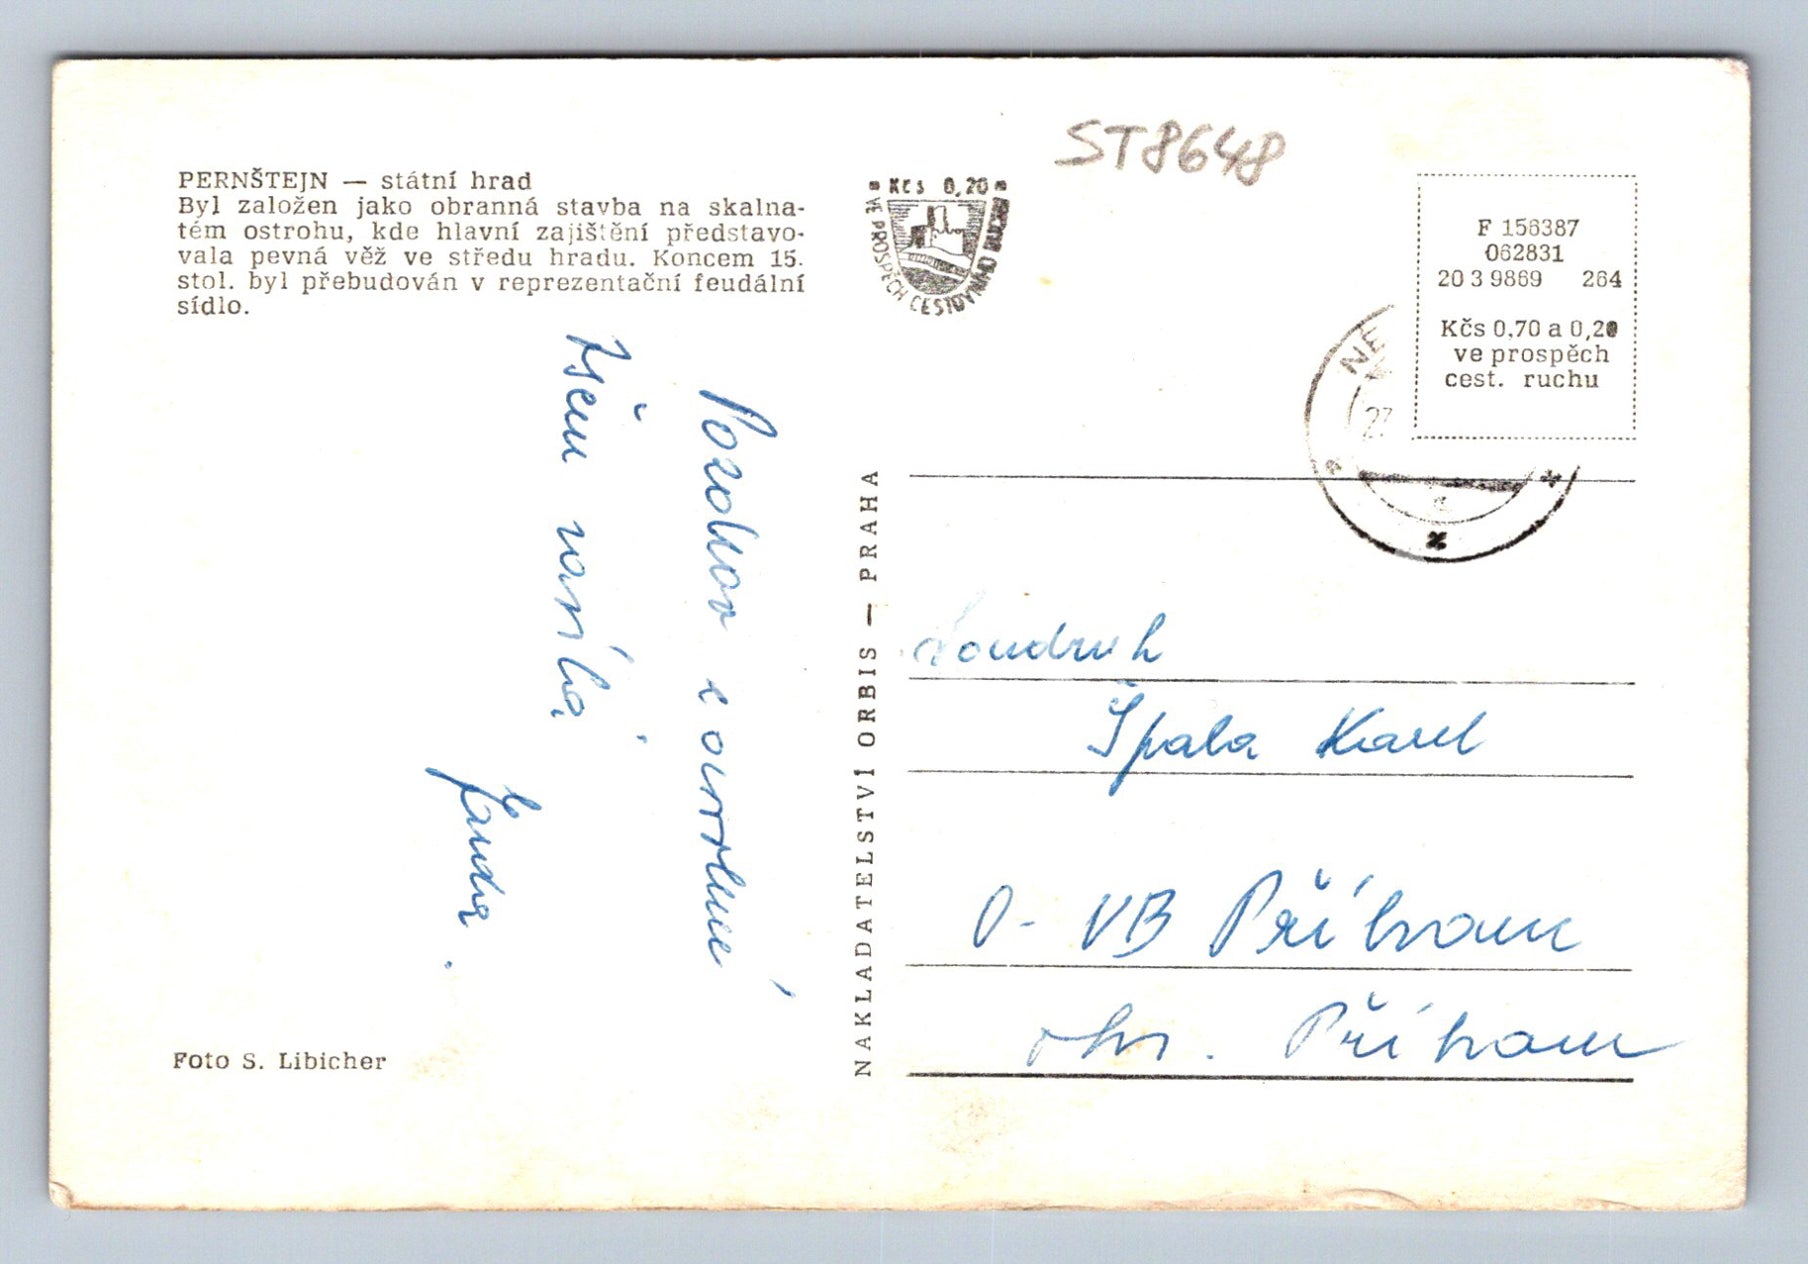 PERNŠTEJN — státní hrad
Byl založen jako obranná stavba na skalna-
tém ostrohu, kde hlavní zajištění představo-
vala pevná věž ve středu hradu. Koncem 15.
stol. byl přebudován v reprezentační feudální
sídlo.
Pozdrav z
všem
Foto S. Libicher
NAKLADATELSTVÍ ORBIS — PRAHA
ST8648
Kčs 0,20
VE PROSPĚCH CESTOVNÍHO RUCHU
F 156387
062831
20 3 9869 264
Kčs 0,70 a 0,20
ve prospěch
cest. ruchu
NE
Soudruh
Špala Karel
O - VB Příbram
okr. Příbram